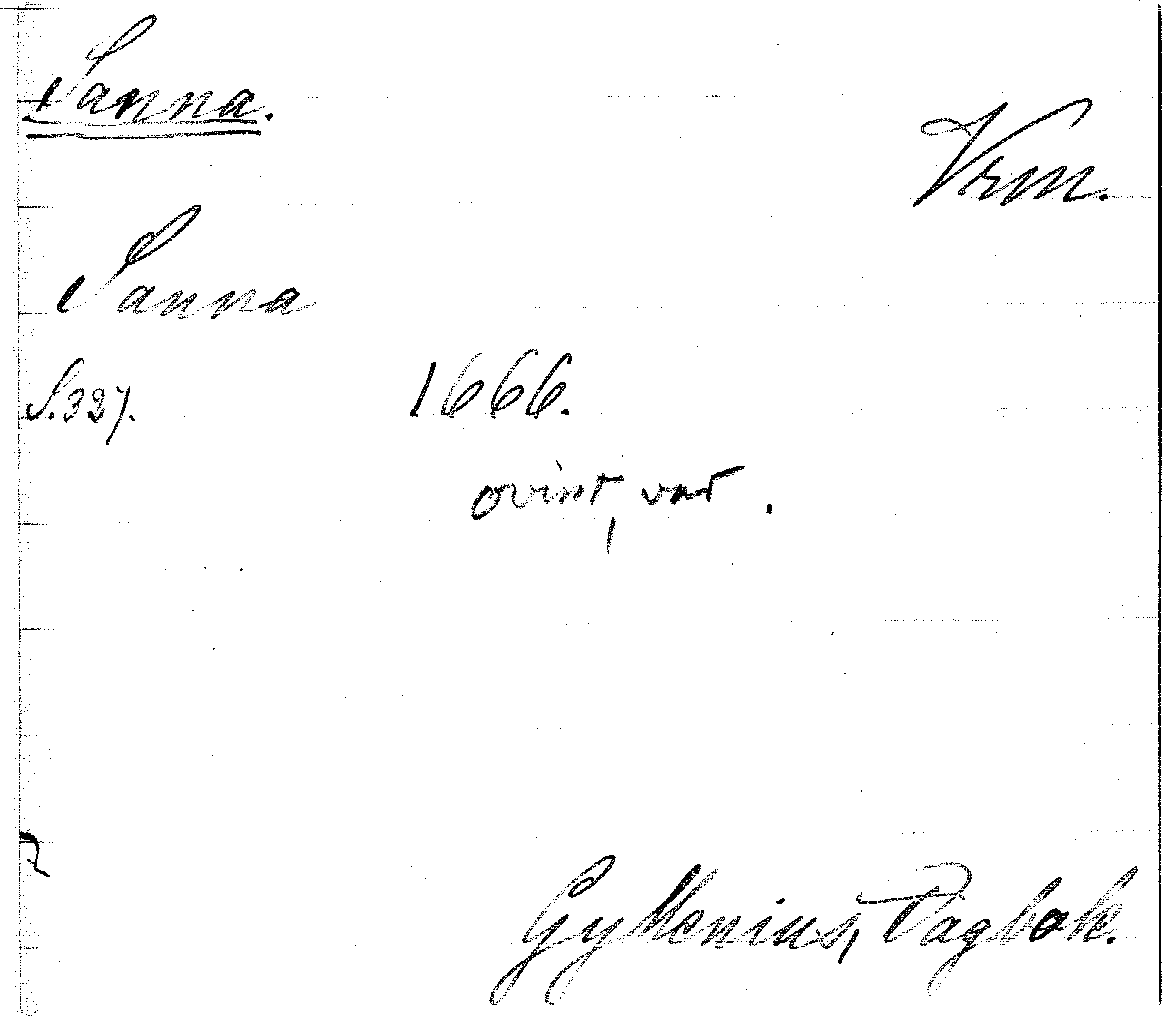 Sanna.
Vrm.
Sanna
S. 327. 1666.
ovist, var.
Gyllenius, Dagbok.